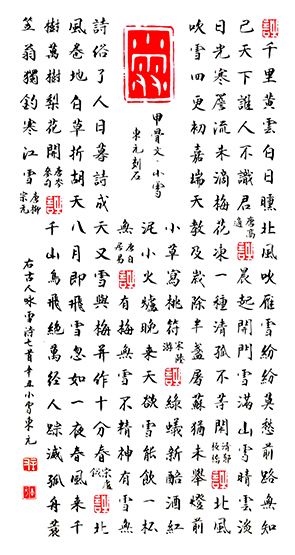 千里黃雲白日曛北風吹雁雪紛紛莫愁前路無知
己天下誰人不識君唐高適晨起開門雪滿山雪晴雲淡
日光寒簷流未滴梅花凍一種清孤不等閑清鄭板橋北風
吹雪四更初嘉瑞天教及歲除半盞屠蘇猶未舉燈前
甲骨文·小雪
東元刻石
小草寫桃符宋陸游綠蟻新醅酒紅
泥小火爐晚來天欲雪能飲一杯
無唐白居易有梅無雪不精神有雪無
詩俗了人日暮詩成天又雪與梅并作十分春宋盧鉞北
風卷地白草折胡天八月即飛雪忽如一夜春風來千
樹萬樹梨花開唐岑參句千山鳥飛絕萬徑人踪滅孤舟蓑
笠翁獨釣寒江雪唐柳宗元
右古人咏雪詩七首辛丑小雪東元